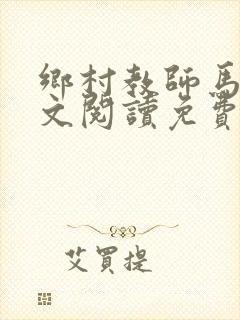 鄉村教師馬
文閱讀免費
艾買提